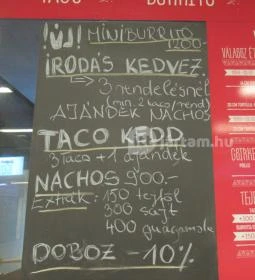 TACO
BURRITO
! ÚJ! MINIBURRITO
1200.-
IRODÁS KEDVEZ
→ 3 rendelésnél
(min. 2 taco/rend)
AJÁNDÉK NACHOS
TACO KEDD
3 taco + 1 ajándék
NACHOS 900.-
Extrák: 150 tejföl
300 sajt
400 guacamole
DOBOZ - 10%
VÁLADOZ